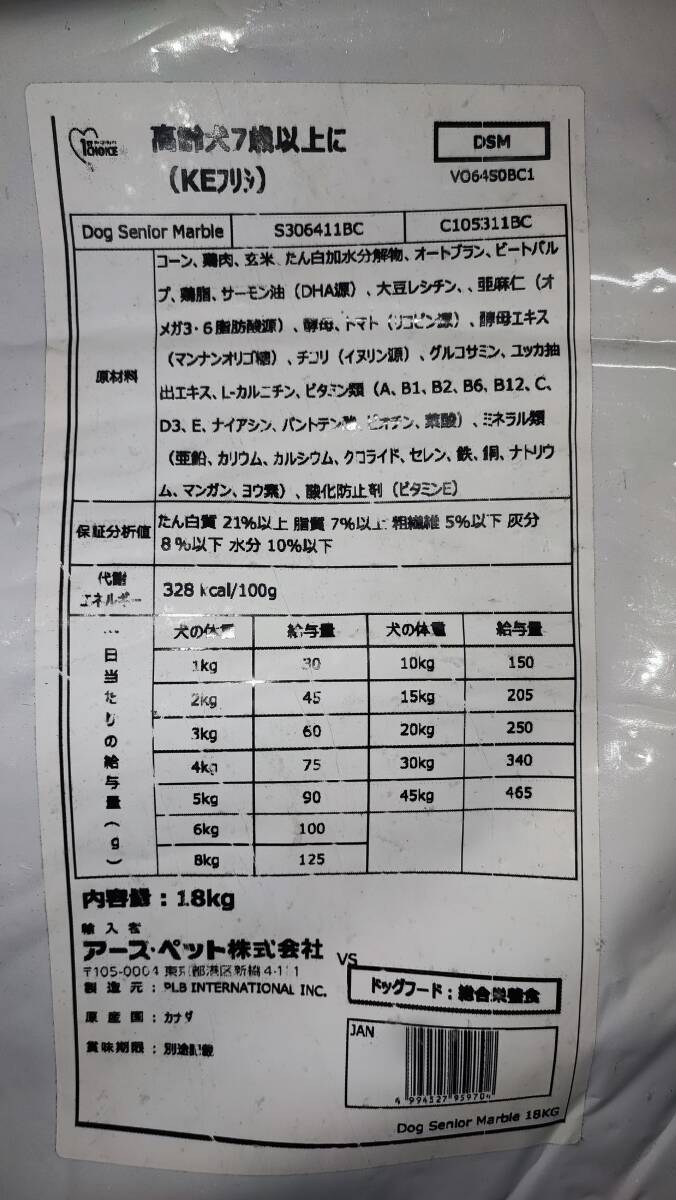 1st CHOICE
高齢犬7歳以上に
(KEフリシ)
DSM
VO64S0BC1
Dog Senior Marble S306411BC C105311BC
原材料
コーン、鶏肉、玄米、たん白加水分解物、オートブラン、ビートパル
プ、鶏脂、サーモン油(DHA源)、大豆レシチン、、亜麻仁(オ
メガ3・6脂肪酸源)、酵母、トマト(リコピン源)、酵母エキス
(マンナンオリゴ糖)、チコリ(イヌリン源)、グルコサミン、ユッカ抽
出エキス、L-カルニチン、ビタミン類(A、B1、B2、B6、B12、C、
D3、E、ナイアシン、パントテン酸、ビオチン、葉酸)、ミネラル類
(亜鉛、カリウム、カルシウム、クロライド、セレン、鉄、銅、ナトリウ
ム、マンガン、ヨウ素)、酸化防止剤(ビタミンE)
保証分析値
たん白質 21%以上 脂質 7%以上 粗繊維 5%以下 灰分
8%以下 水分 10%以下
代謝
エネルギー
328 kcal/100g
一日当たりの給与量(g)
犬の体重 給与量 犬の体重 給与量
1kg 30 10kg 150
2kg 45 15kg 205
3kg 60 20kg 250
4kg 75 30kg 340
5kg 90 45kg 465
6kg 100
8kg 125
内容量:18kg
輸入者
アース・ペット株式会社
〒105-0004 東京都港区新橋4-11
製造元:PLB INTERNATIONAL INC.
原産国:カナダ
賞味期限:別途記載
VS
ドッグフード:総合栄養食
JAN
4 994527 959704
Dog Senior Marble 18KG